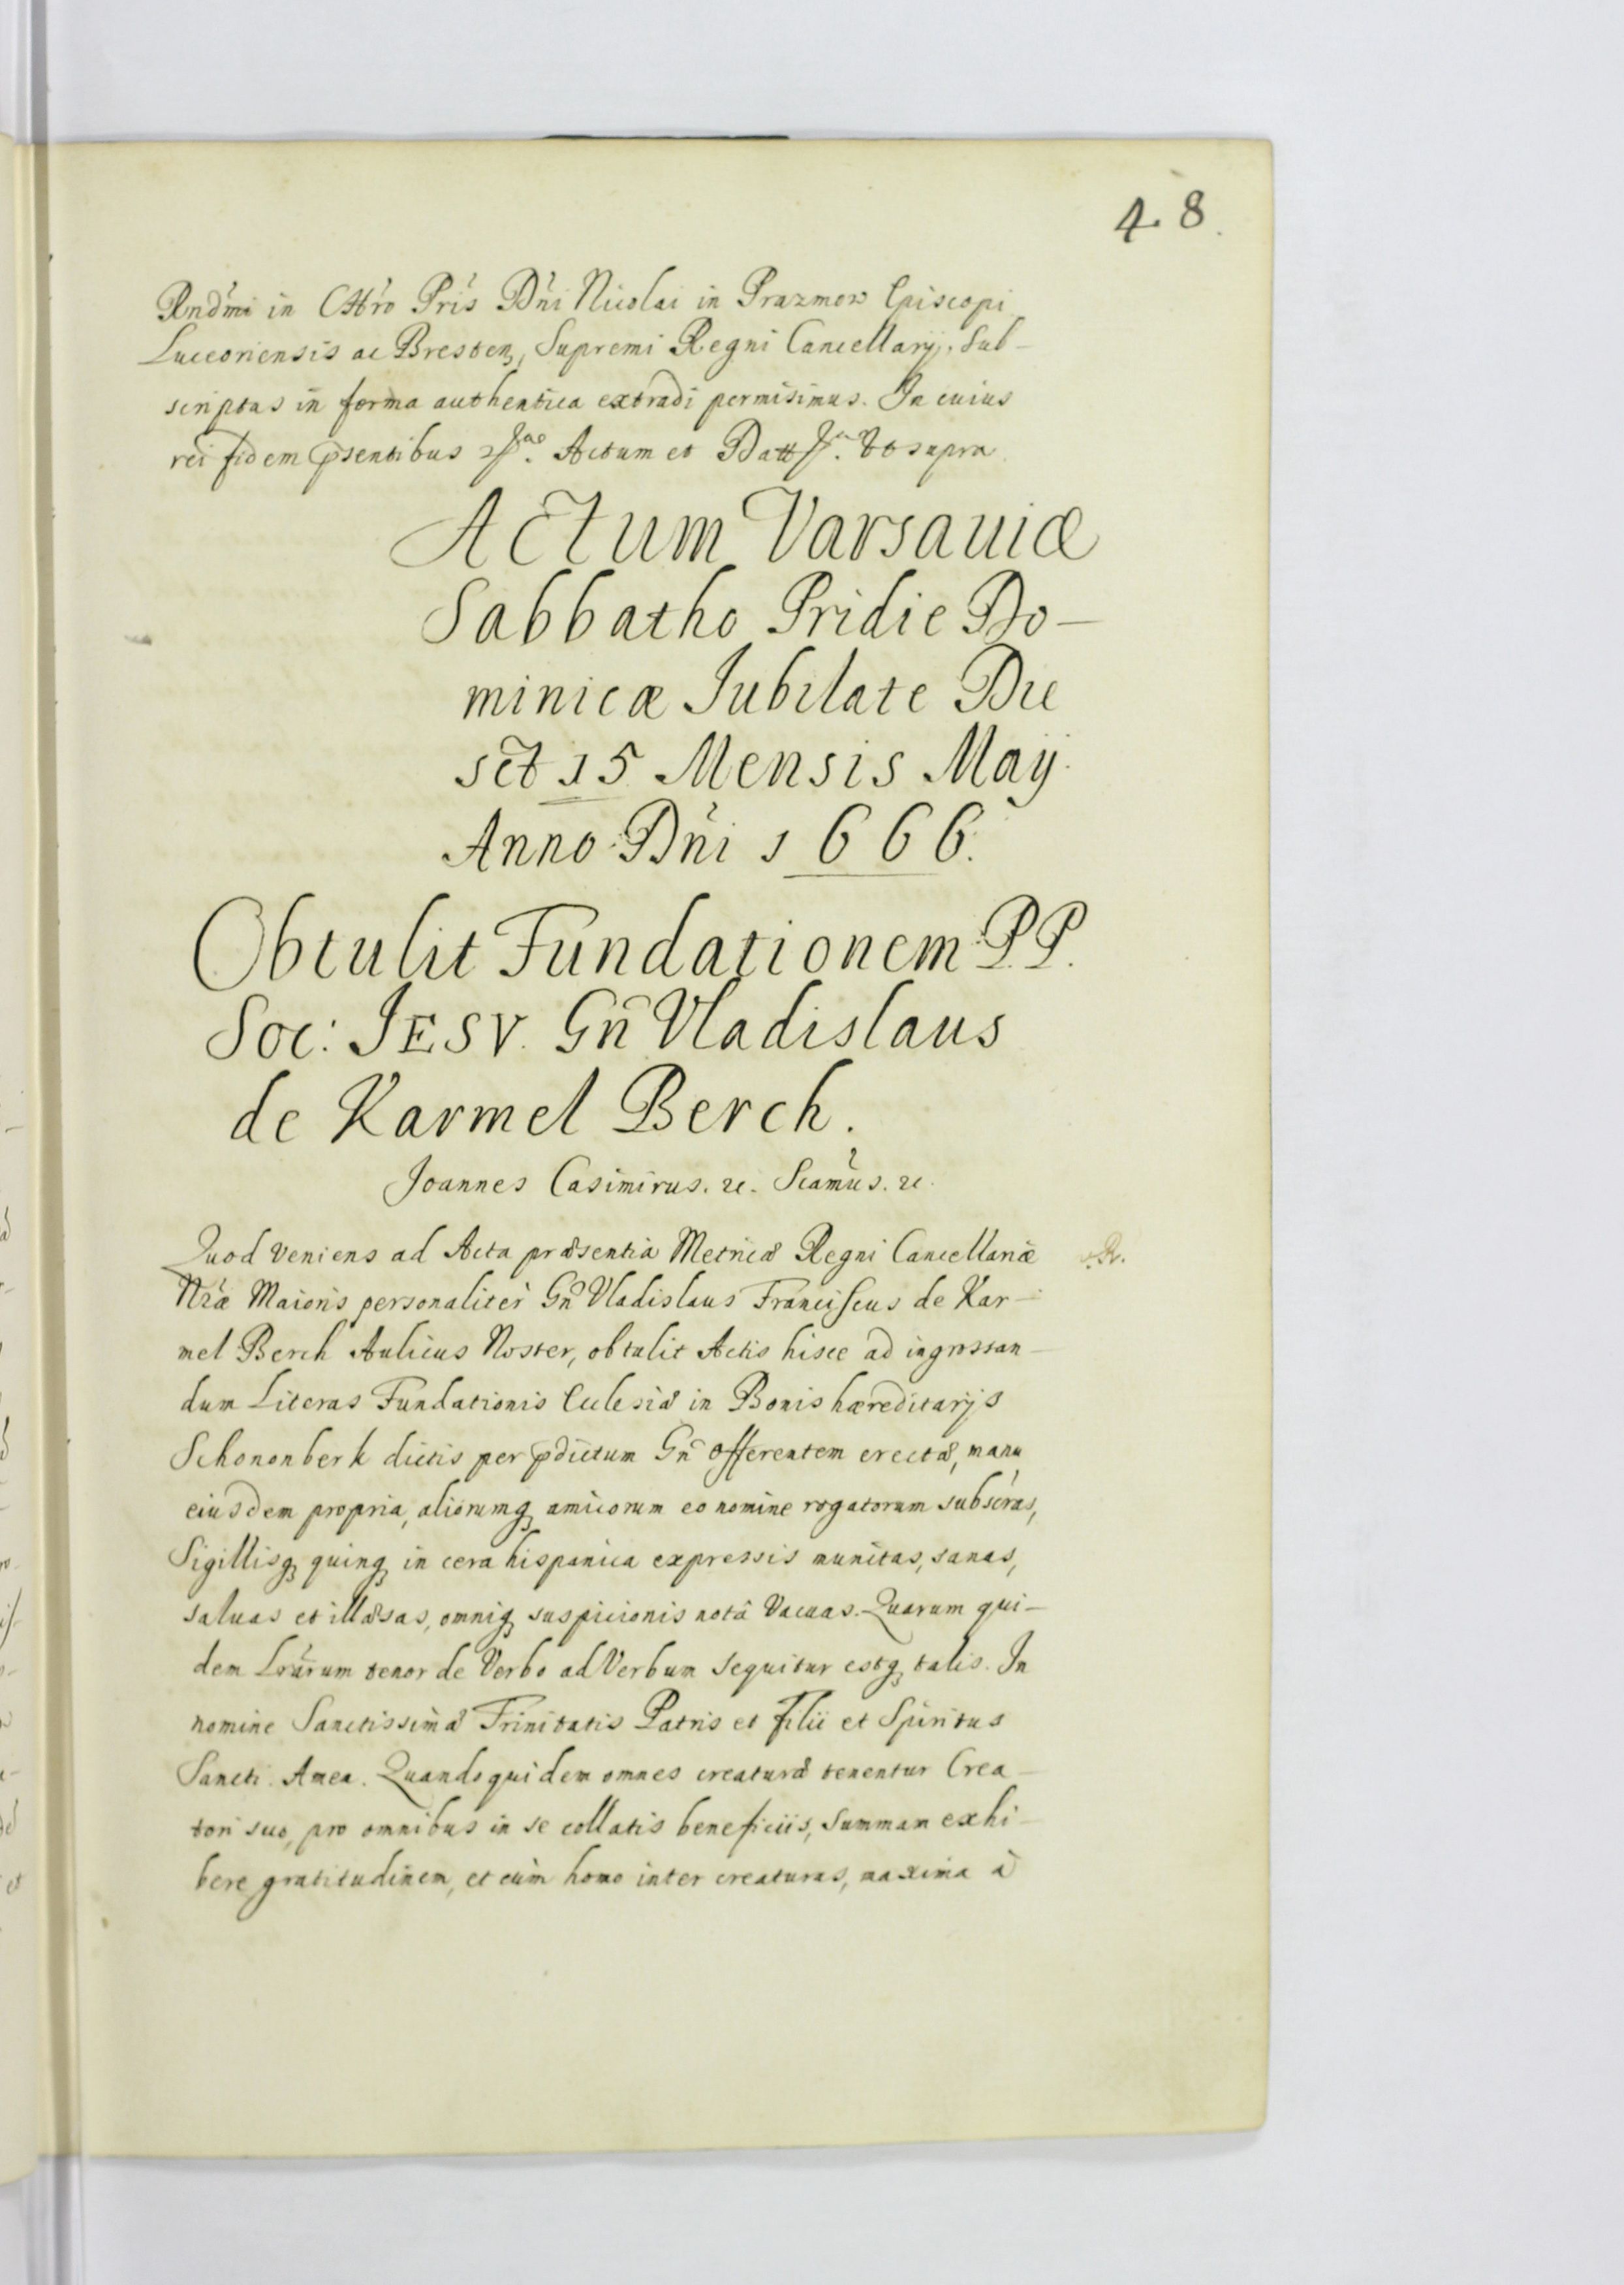 48.
Rndmi in Chro Pris Dni Nicolai in Prazmow Episcopi
Luceoriensis ac Bresten, Supremi Regni Cancellarij, sub-
scriptas in forma authentica extradi permisimus. In cuius
rei fidem psentibus Actum et Datt Vt supra
Actum Varsauiæ
Sabbatho Pridie Do-
minicæ Jubilate Die
sct 15 Mensis Maij
Anno Dni 1666.
Obtulit Fundationem PP.
Soc: JESV. Gn Vladislaus
de Karmel Berch.
Joannes Casimirus. &c. Scamus. &c.
Quod veniens ad Acta præsentia Metricæ Regni Cancellariæ
R.
Nræ Maioris personaliter Gn Vladislaus Franciscus de Kar-
mel Berch Aulicus Noster, obtulit Actis hisce ad ingrossan-
dum Literas Fundationis Ecclesiæ in Bonis hæreditarijs
Schononberk dictis per pdictum Gn offerentem erectæ, manu
eiusdem propria, aliorumq amicorum eo nomine rogatorum subscras,
Sigillisq quinq in cera hispanica expressis munitas, sanas,
saluas et illæsas, omniq suspicionis notâ Vacuas. Quarum qui-
dem Lrarum tenor de Verbo ad Verbum sequitur estq talis. In
nomine Sanctissimæ Trinitatis Patris et Filii et Spiritus
Sancti. Amen. Quandoquidem omnes creaturæ tenentur Crea-
tori suo, pro omnibus in se collatis beneficiis, summam exhi-
bere gratitudinem, et cùm homo inter creaturas, maxima à